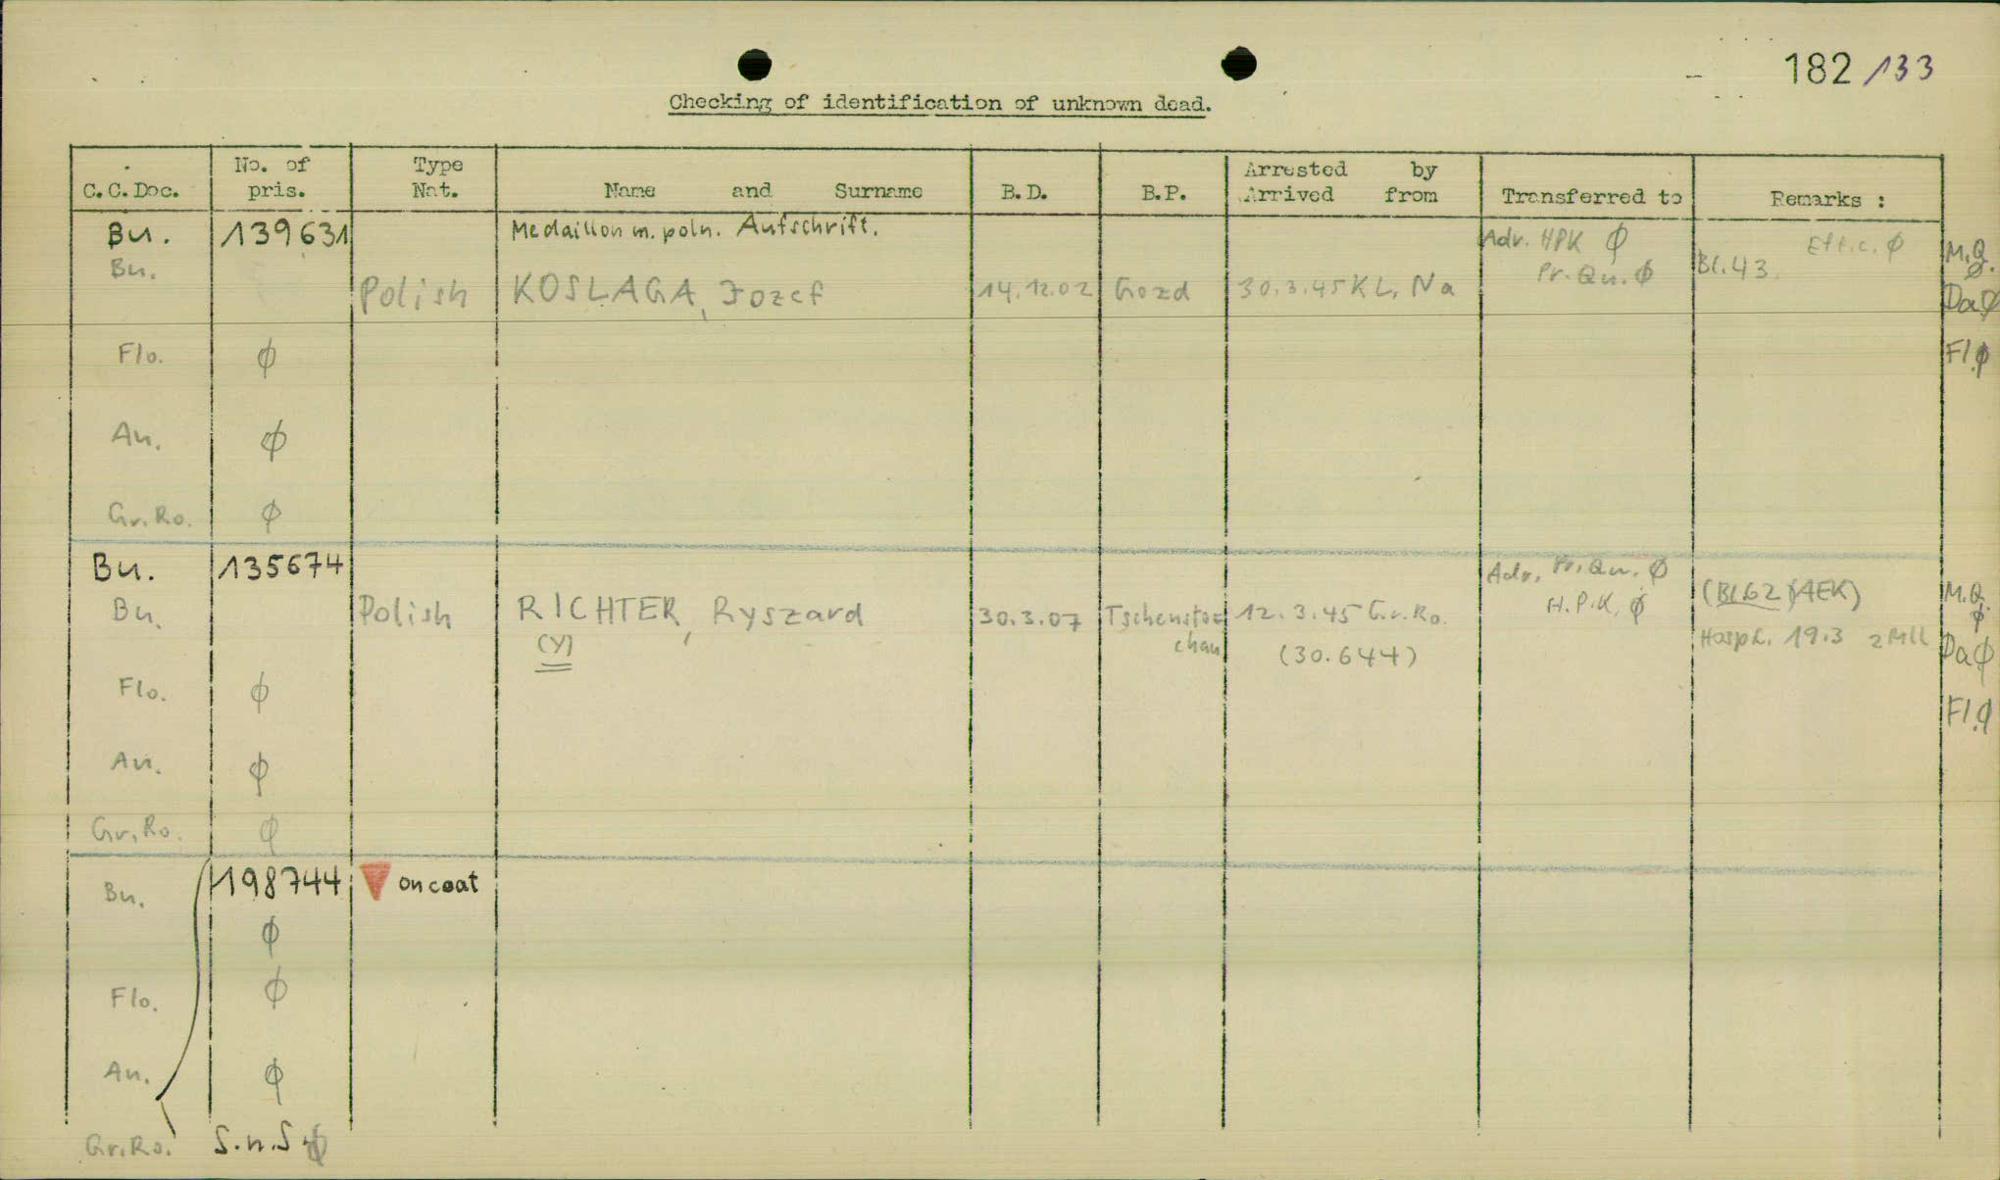 182/133
Checking of identification of unknown dead.
C.C.Doc. No. of pris. Type Nat. Name and Surname B.D. B.P. Arrested by Arrived from Transferred to Remarks :
Bu. 139631 Medaillon m. poln. Aufschrift. Adv. HPK ϕ Eff.c. ϕ M.Q. ϕ
Bu. Pr. Qu. ϕ Bl. 43
Polish KOSLAGA, Jozef 14.12.02 Gozd 30.3.45 KL. Na Da ϕ
Flo. ϕ Fl. ϕ
An. ϕ
Gr. Ro. ϕ
Bu. 135674 Adv. Pr. Qu. ϕ (Bl. 62) (AEK) M.Q. ϕ
Bu. Polish RICHTER, Ryszard 30.3.07 Tschenstochau 12.3.45 Gr. Ro. H.P.K. ϕ
(Y) (30.644) 19.3 Da ϕ
Flo. ϕ Fl. ϕ
An. ϕ
Gr. Ro. ϕ
Bu. 198744 on coat
ϕ
Flo. ϕ
An. ϕ
Gr. Ro. S.n.S ϕ